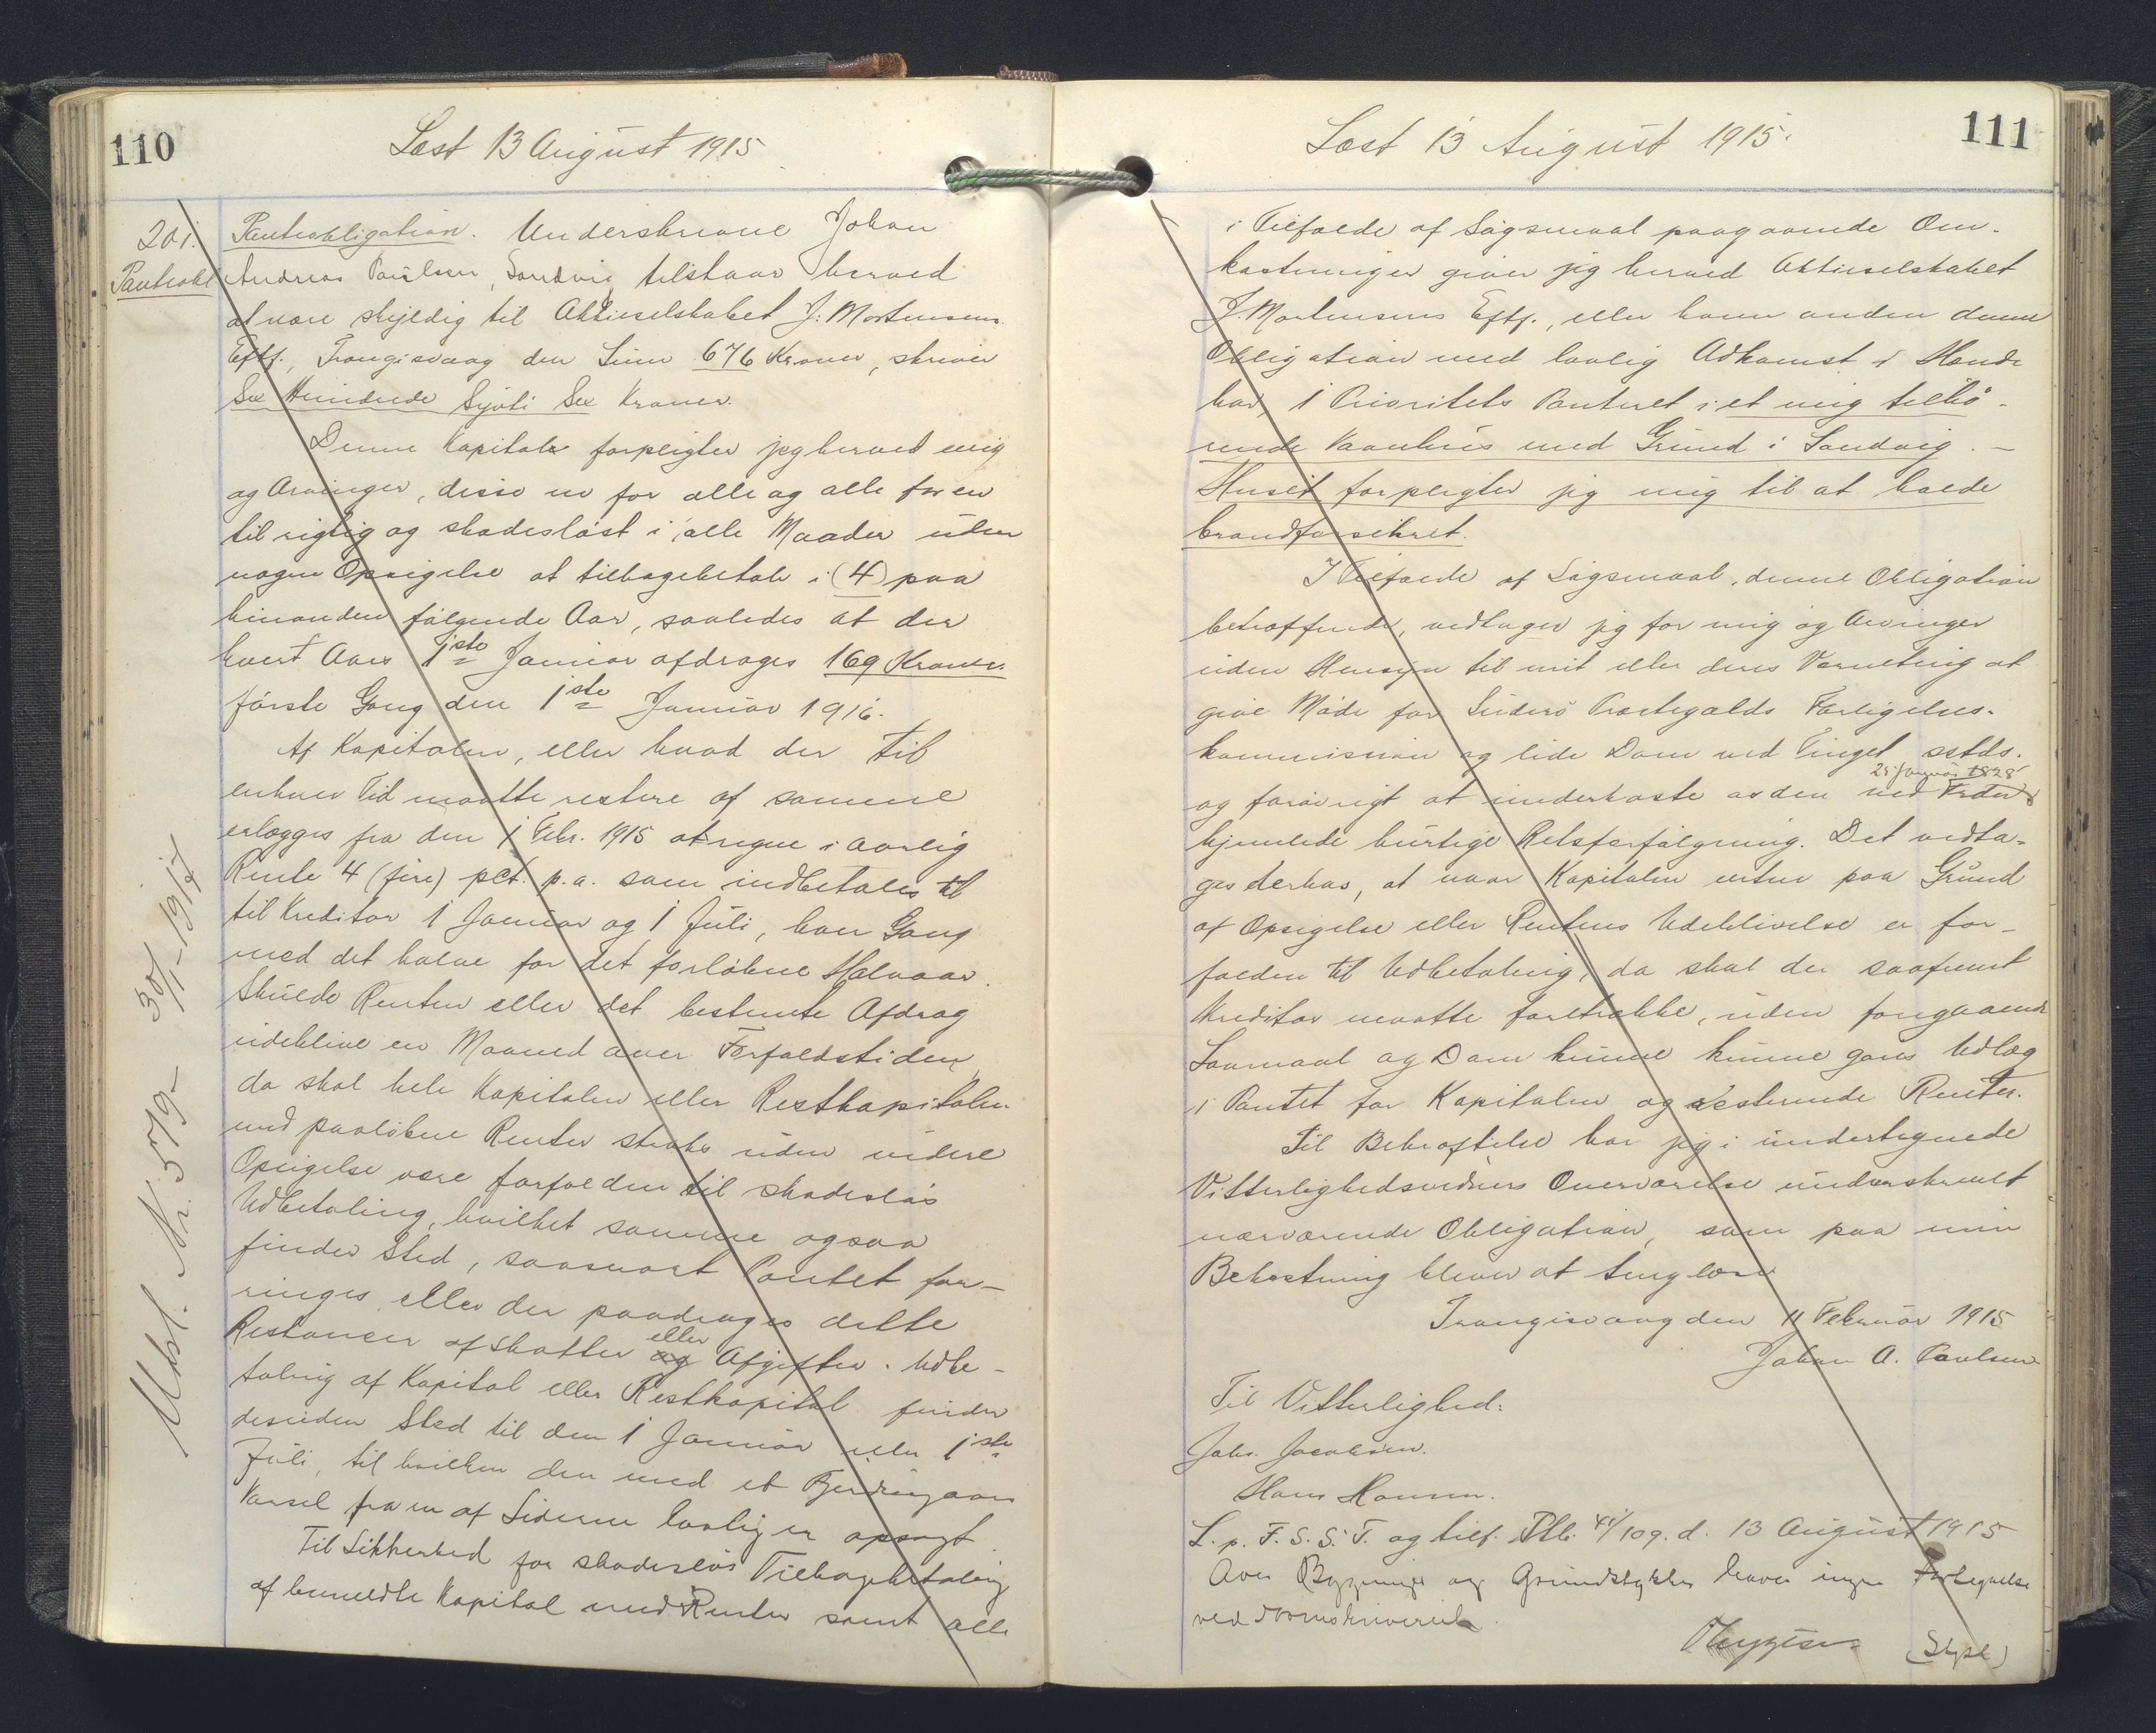 110
Læst 13 August 1915
201.
Panteobl
Panteobligation. Underskrevne Johan
Andreas Paulsen, Sandvig tilstaar herved
at være skyldig til Aktieselskabet J. Mortensens
Eftf., Trangisvaag den Sum 676 Kroner, skriver
Sex Hundrede Syvti Sex Kroner.
Denne Kapital forpligter jeg herved mig
og Arvinger, disse en for alle og alle for en
til rigtig og skadesløst i alle Maader uden
nogen Opsigelse at tilbagebetale i (4) paa
hinanden følgende Aar, saaledes at der
hvert Aars 1ste Januar afdrages 169 Kroner.
første Gang den 1ste Januar 1916.
Af Kapitalen, eller hvad der til
enhver Tid maatte restere af samme
erlægges fra den 1 Febr. 1915 at regne i aarlig
Rente 4 (fire) pCt. p.a. som indbetales til
til Kreditor 1 Januar og 1 Juli, hver Gang
med det halve for det forløbne Halvaar.
Skulde Renten eller det bestemte Afdrag
udeblive en Maaned over Forfaldstiden,
da skal hele Kapitalen eller Restkapitalen
med paaløbne Renter straks uden videre
Opsigelse være forfalden til skadesløs
Udbetaling, hvilket samme ogsaa
finder Sted, saasnart Pantet for-
ringes eller der paadrages dette
Restancer af Skatter og eller Afgifter. Udbe-
taling af Kapital eller Restkapital finder
desuden Sted til den 1 Januar eller 1ste
Juli, til hvilken den med et Fjerdingaars
Varsel fra en af Siderne lovlig er opsagt.
Til Sikkerhed for skadesløs Tilbagebetaling
af bemeldte Kapital med Renter samt alle
Udsl. Nr. 579 - 30/1 - 1917
111
Læst 13 August 1915.
i Tilfælde af Søgsmaal paagaaende Om-
kostninger giver jeg herved Aktieselskabet
J. Mortensens Eftf., eller hvem anden denne
Obligation med lovlig Adkomst i Hænde
har, 1 Prioritets Panteret i et mig tilhø-
rende Vaanhus med Grund i Sandvig. -
Huset forpligter jeg mig til at holde
brandforsikret.
I Tilfælde af Søgsmaal, denne Obligation
betræffende, vedtager jeg for mig og Arvinger
uden Hensyn til mit eller deres Værneting at
give Møde for Suderø Præstegjælds Forligelses-
kommission og lide Dom ved Tinget sstds.
og forøvrigt at underkaste os den ved Frdn 25 Januar 1828
hjemlede hurtige Retsforfølgning. Det vedta-
ges derhos, at naar Kapitalen enten paa Grund
af Opsigelse eller Rentens Udeblivelse er for-
falden til Udbetaling, da skal der saafremt
Kreditor maatte foretrække, uden foregaaende
Lovmaal og Dom kunne kunne gøres Udlæg
i Pantet for Kapitalen og resterende Renter.
Til Bekræftelse har jeg i undertegnede
Vitterlighedsvidners Overværelse underskrevet
nærværende Obligation, som paa min
Bekostning bliver at tinglæse
Trangisvaag den 11 Februar 1915
Johan A. Paulsen
Til Vitterlighed:
Johs. Jacobsen.
Hans Hansen.
L. p. F. S. S. T. og tilf. Ptb. 41/109. d. 13 August 1915
Over Bygninger og Grundstykker haves ingen Fortegnelse
ved Sorenskriveriet.
(Stpl.)